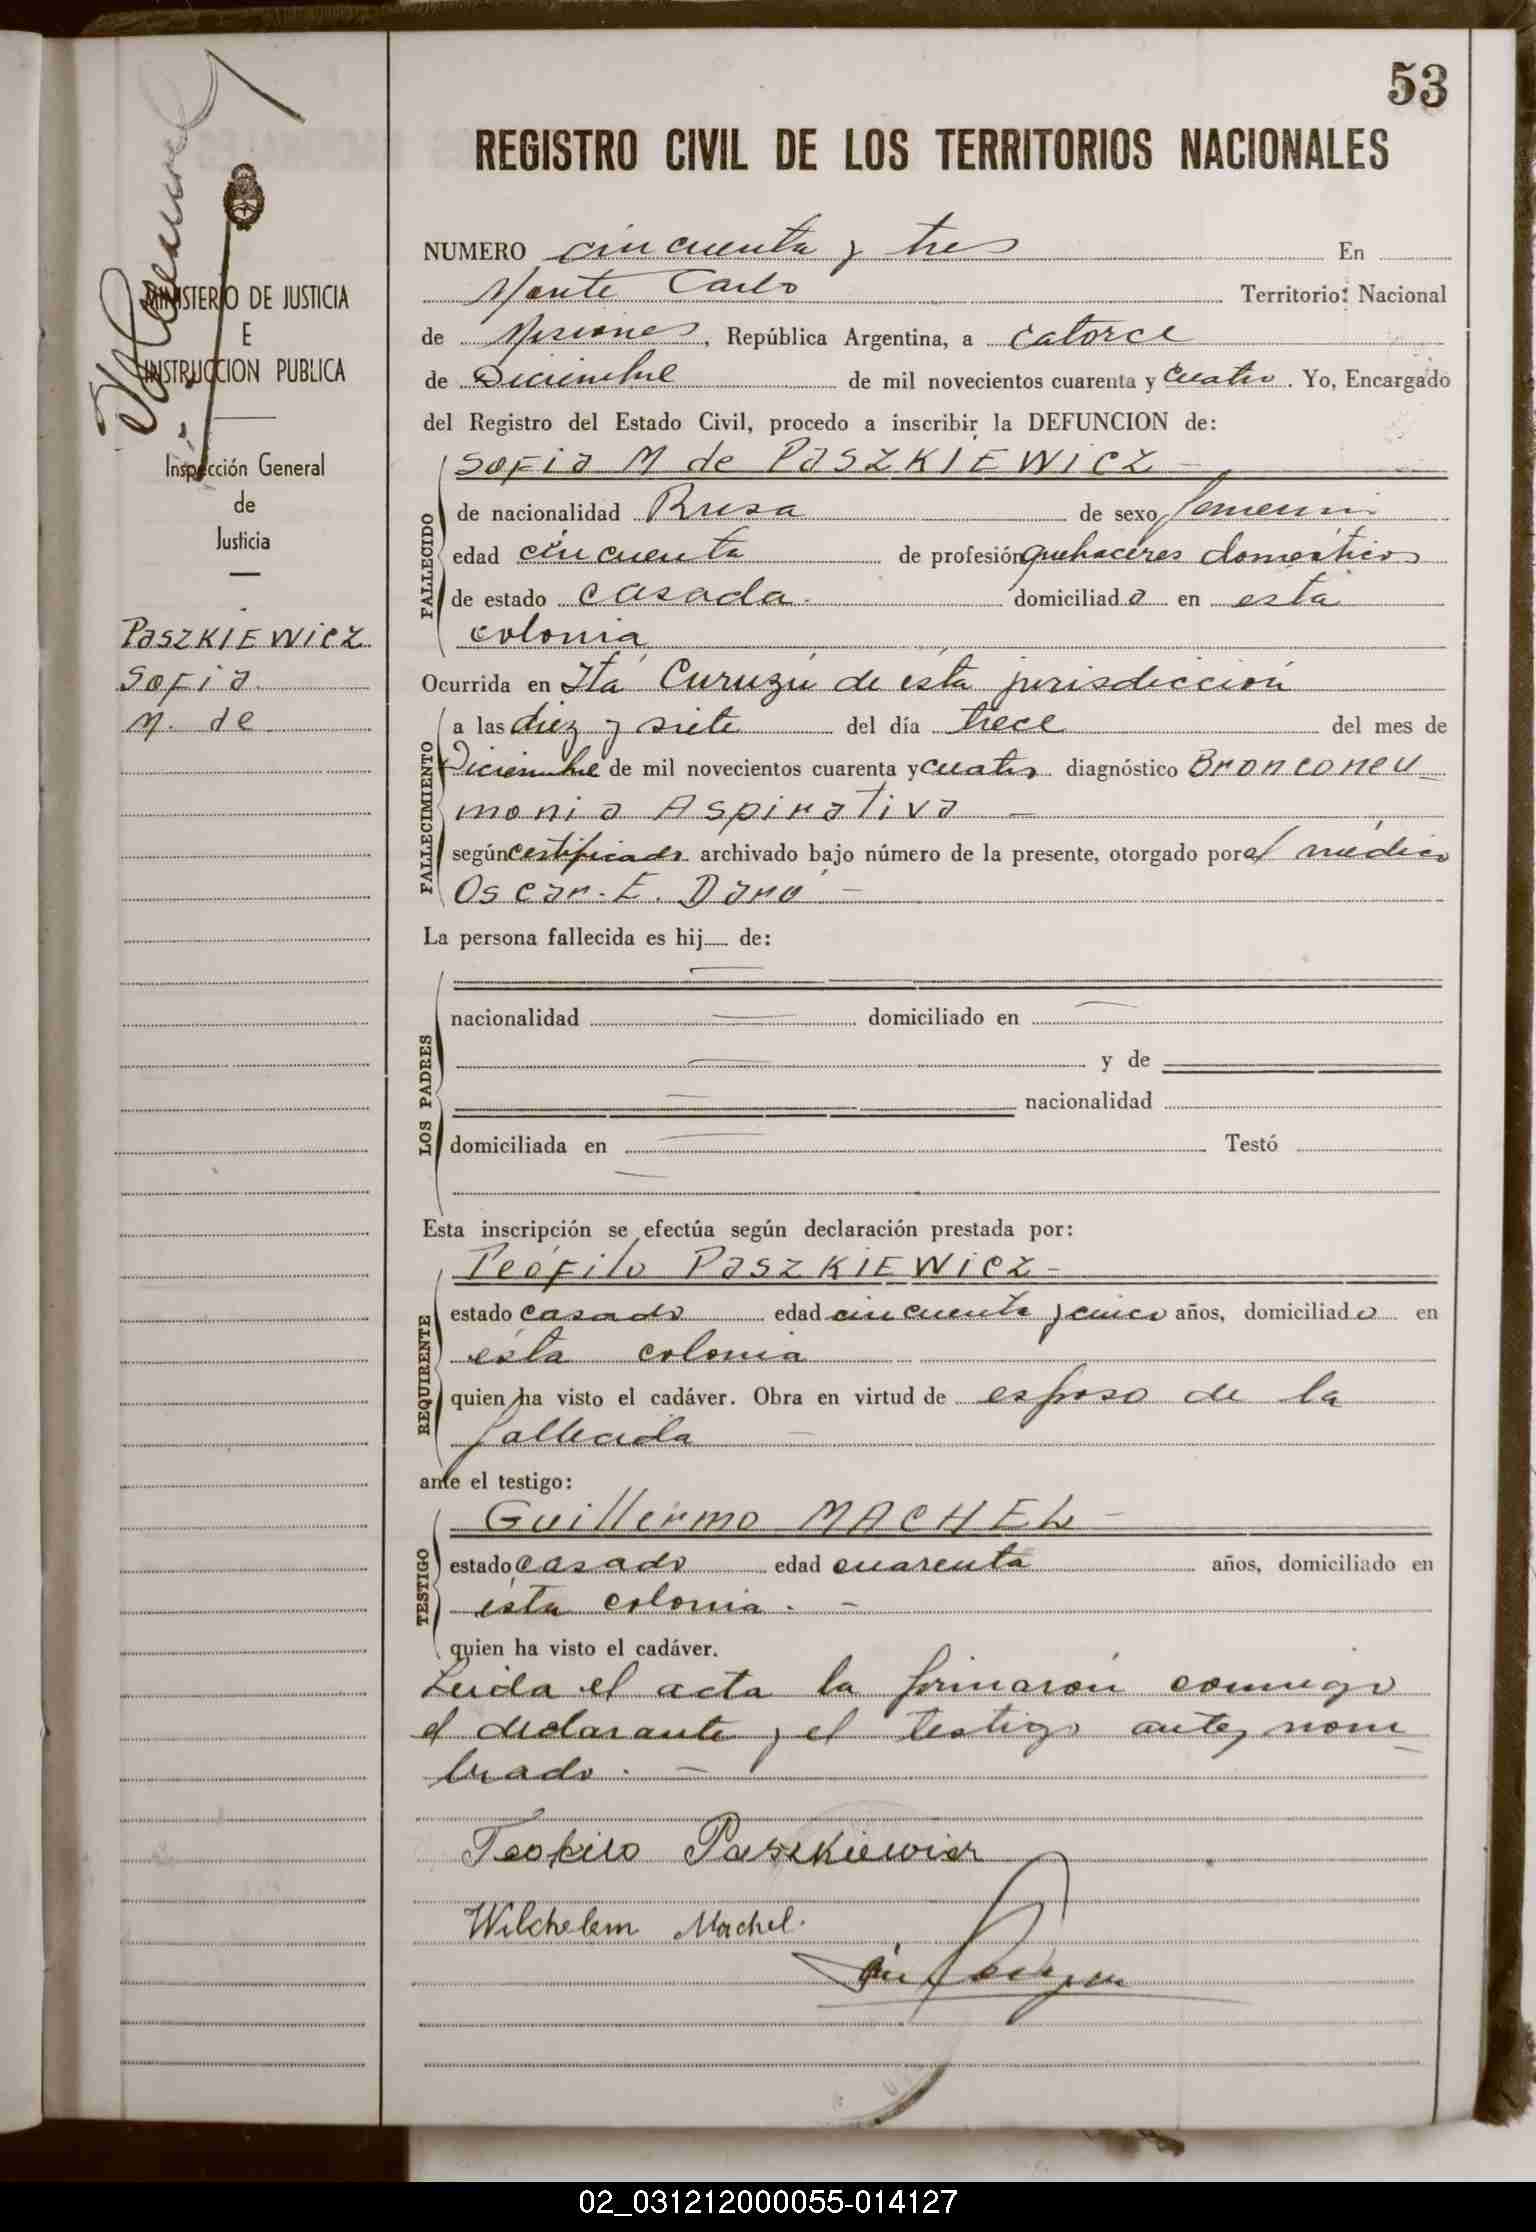 53
REGISTRO CIVIL DE LOS TERRITORIOS NACIONALES
MINISTERIO DE JUSTICIA
E
INSTRUCCION PUBLICA
Inspección General
de
Justicia
PASZKIEWICZ
Sofia
M. de
NUMERO cincuenta y tres En
Monte Carlo Territorio: Nacional
de Misiones, República Argentina, a catorce
de Diciembre de mil novecientos cuarenta y cuatro. Yo, Encargado
del Registro del Estado Civil, procedo a inscribir la DEFUNCION de:
Sofia M de PASZKIEWICZ -
FALLECIDO
de nacionalidad Rusa de sexo femenin
edad cincuenta de profesión quehaceres domésticos
de estado casada. domiciliada en esta
colonia
Ocurrida en Itá Curuzú de ésta jurisdicción
FALLECIMIENTO
a las diez y siete del día trece del mes de
Diciembre de mil novecientos cuarenta y cuatro diagnóstico Bronconeu
monia Aspirativa -
según certificado archivado bajo número de la presente, otorgado por el médico
Oscar. E. Daró -
La persona fallecida es hij de:
LOS PADRES
nacionalidad domiciliado en
y de
nacionalidad
domiciliada en Testó
Esta inscripción se efectúa según declaración prestada por:
Teófilo PASZKIEWICZ -
REQUIRENTE
estado casado edad cincuenta y cinco años, domiciliado en
ésta colonia
quien ha visto el cadáver. Obra en virtud de esposo de la
fallecida -
ante el testigo:
Guillermo MACHEL -
TESTIGO
estado casado edad cuarenta años, domiciliado en
ésta colonia. -
quien ha visto el cadáver.
Leida el acta la firmarón conmigo
el declarante y el testigo antes nom
brado. -
Teofilo Paszkiewicz
Wilchelem Machel.
02_031212000055-014127